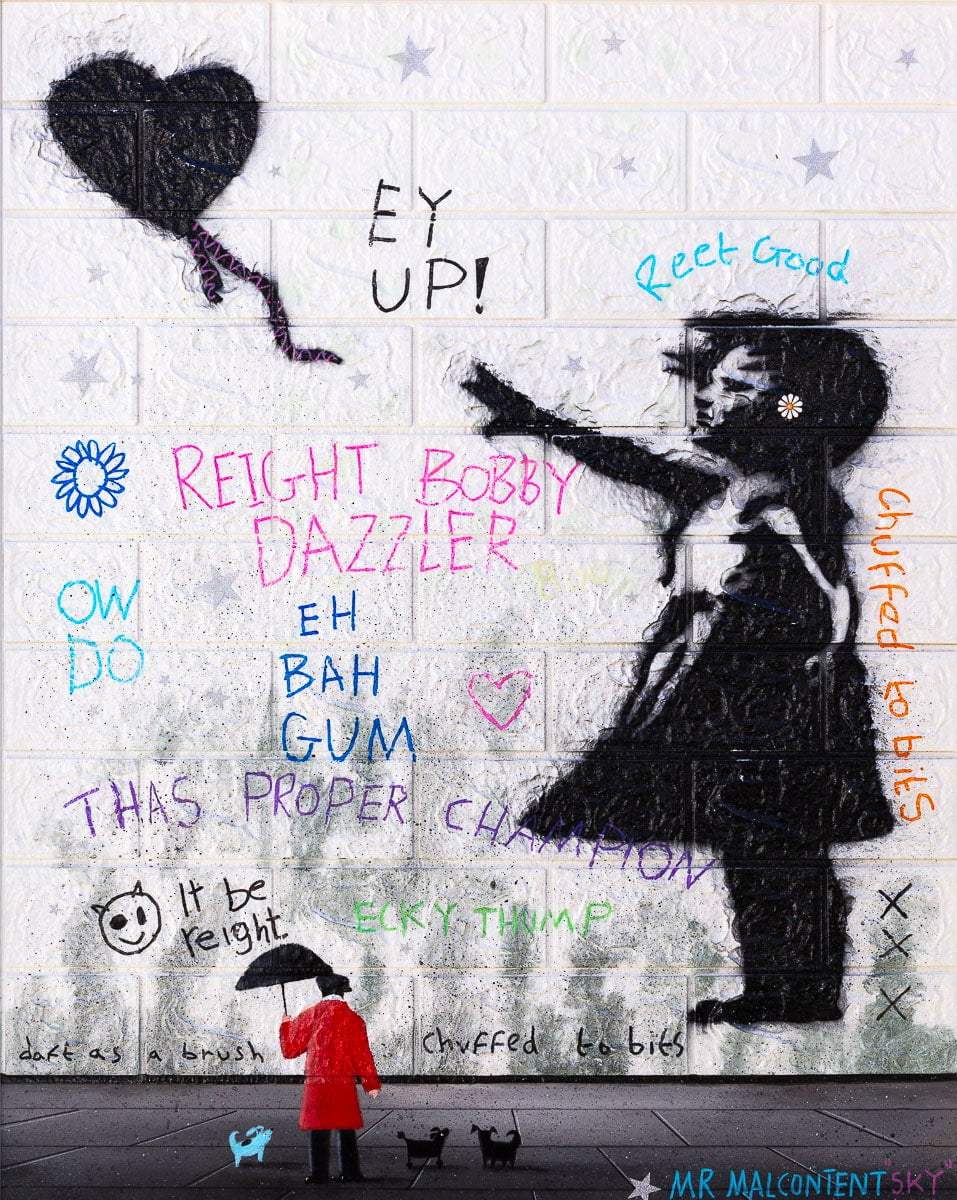 EY
UP!
Reet Good
REIGHT BOBBY
DAZZLER
Chuffed to bits
OW
DO
EH
BAH
GUM
THAS PROPER CHAMPION
It be
reight.
ECKY THUMP
X
X
X
daft as a brush
chuffed to bits
MR MALCONTENT "SKY"